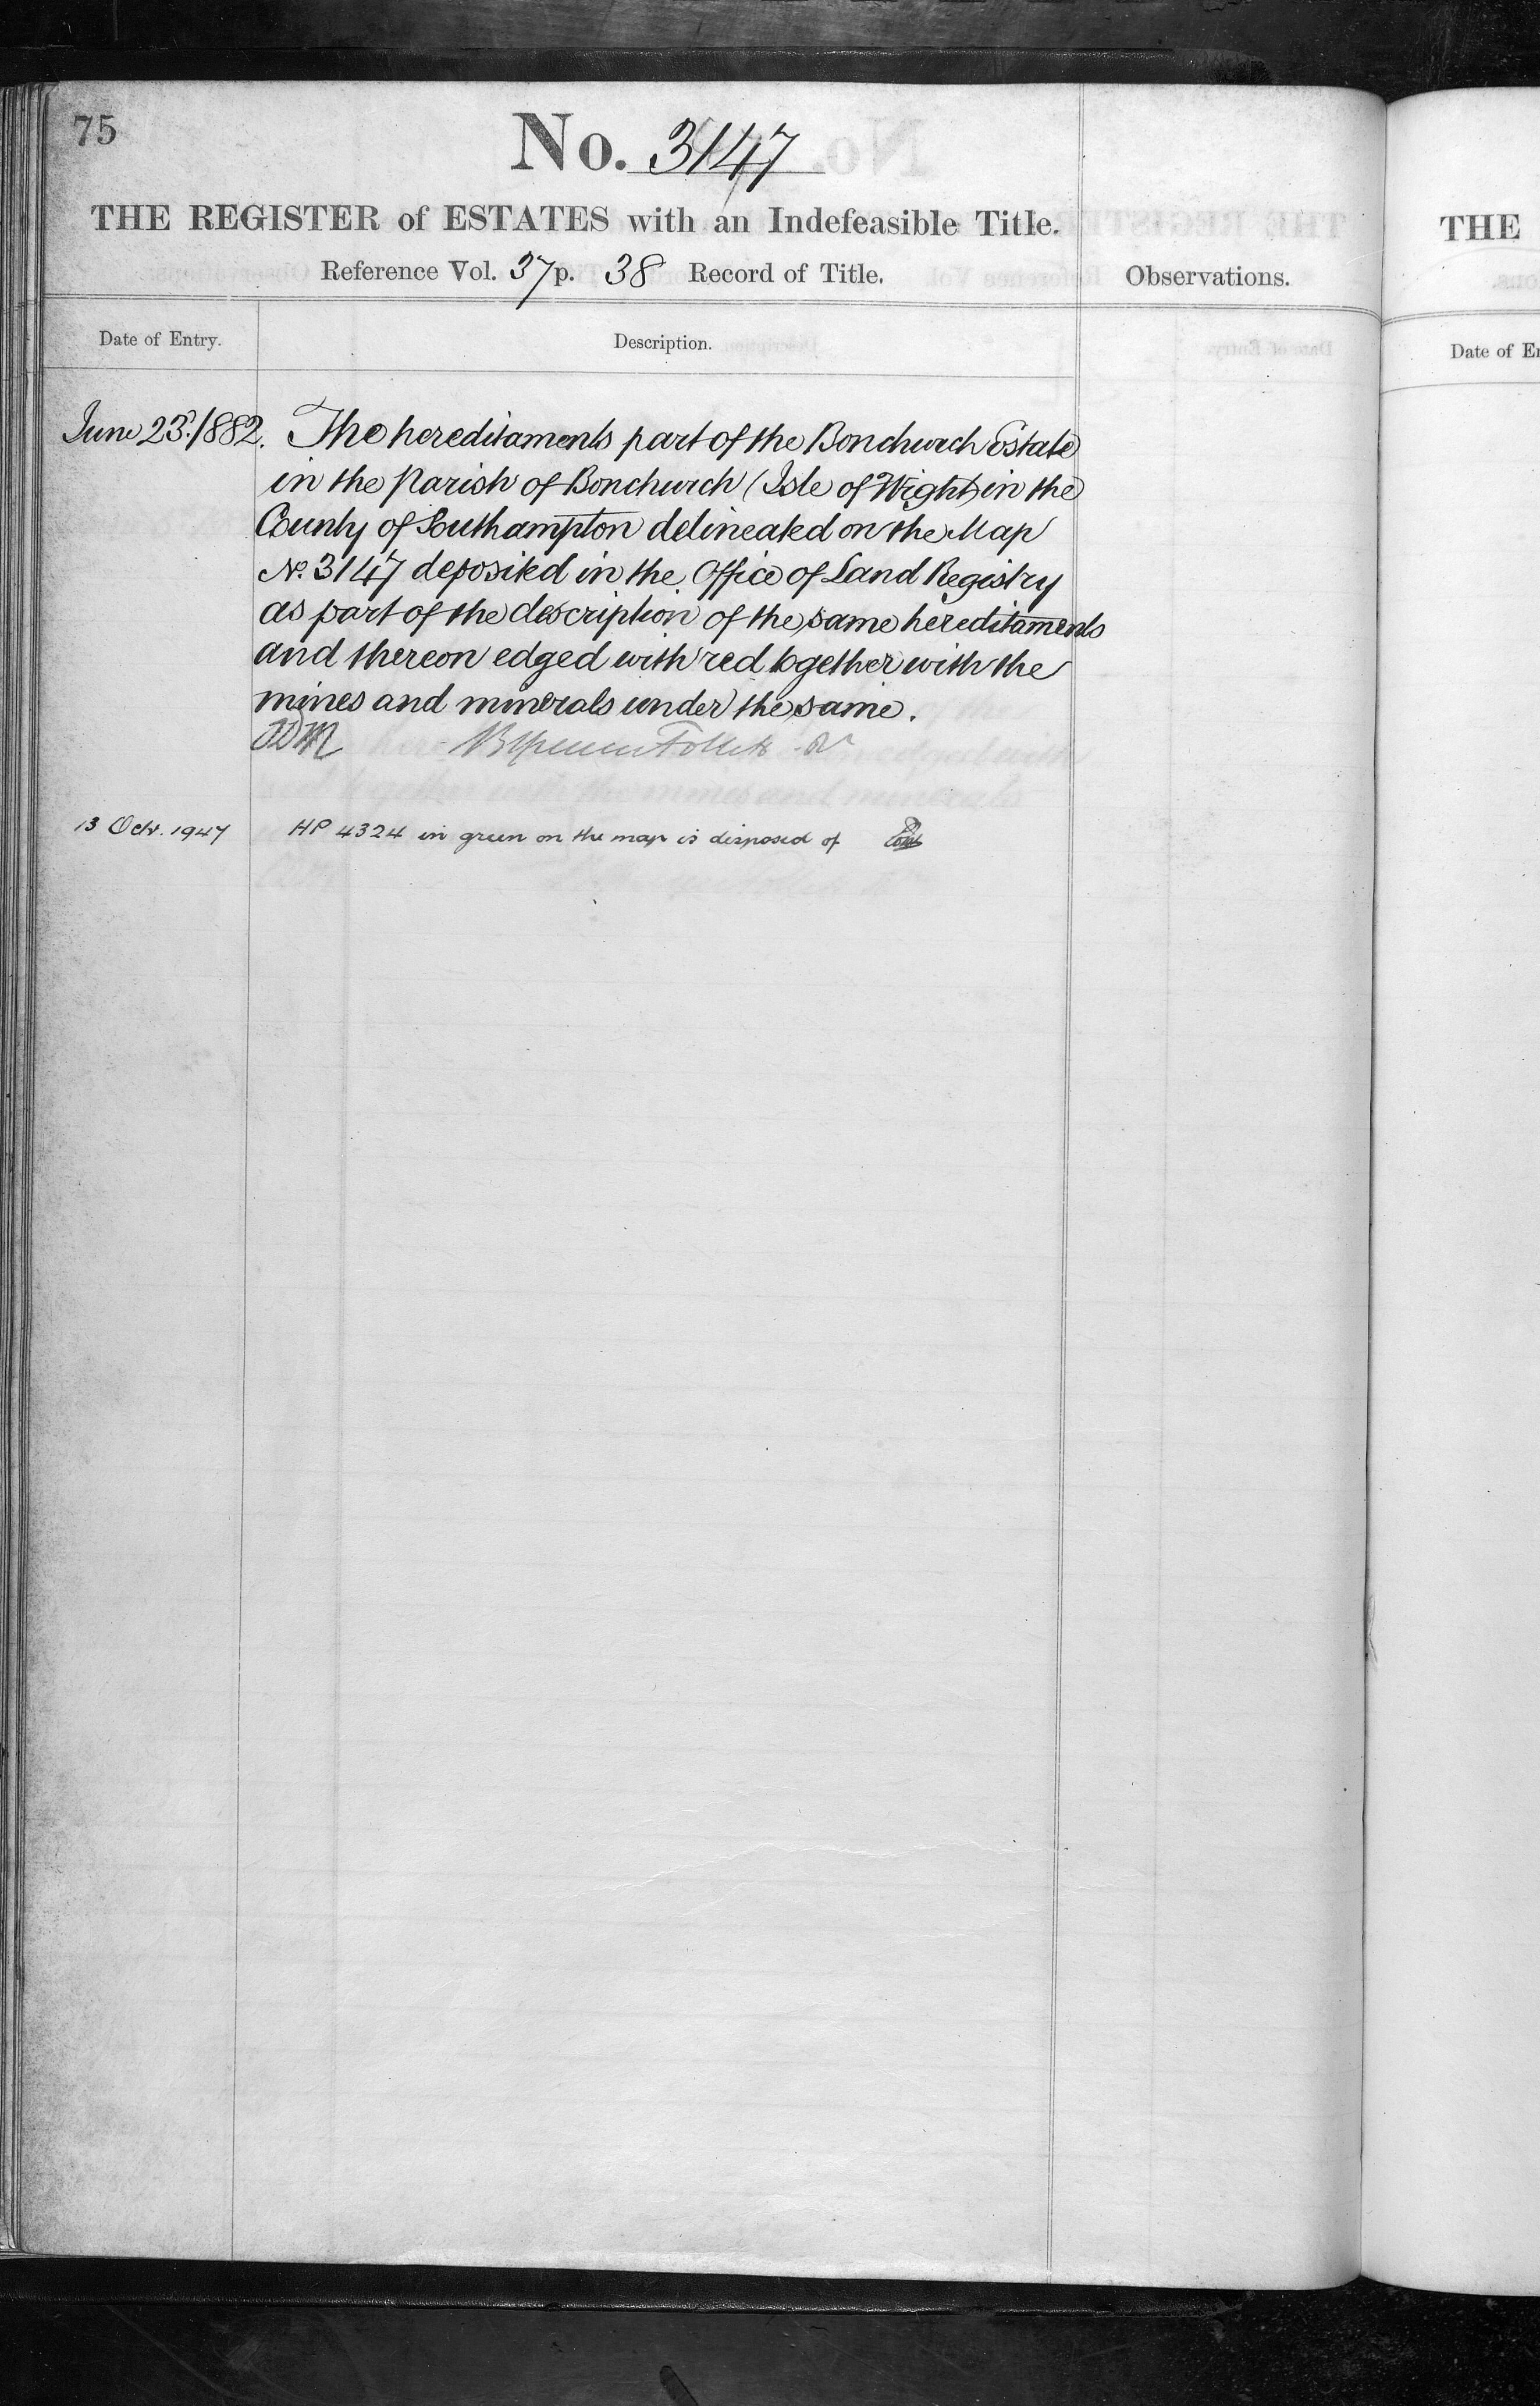 75
No. 3147
THE REGISTER of ESTATES with an Indefeasible Title.
Reference Vol. 37 p. 38 Record of Title.
Observations.
Date of Entry.
Description.
June 23d. 1882. The hereditaments part of the Bonchurch Estate
in the Parish of Bonchurch (Isle of Wight) in the
County of Southampton delineated on the Map
No. 3147 deposited in the Office of Land Registry
as part of the description of the same hereditaments
and thereon edged with red together with the
mines and minerals under the same.
Follett
13 Oct. 1947 HP 4324 in green on the map is disposed of
THE
Date of En